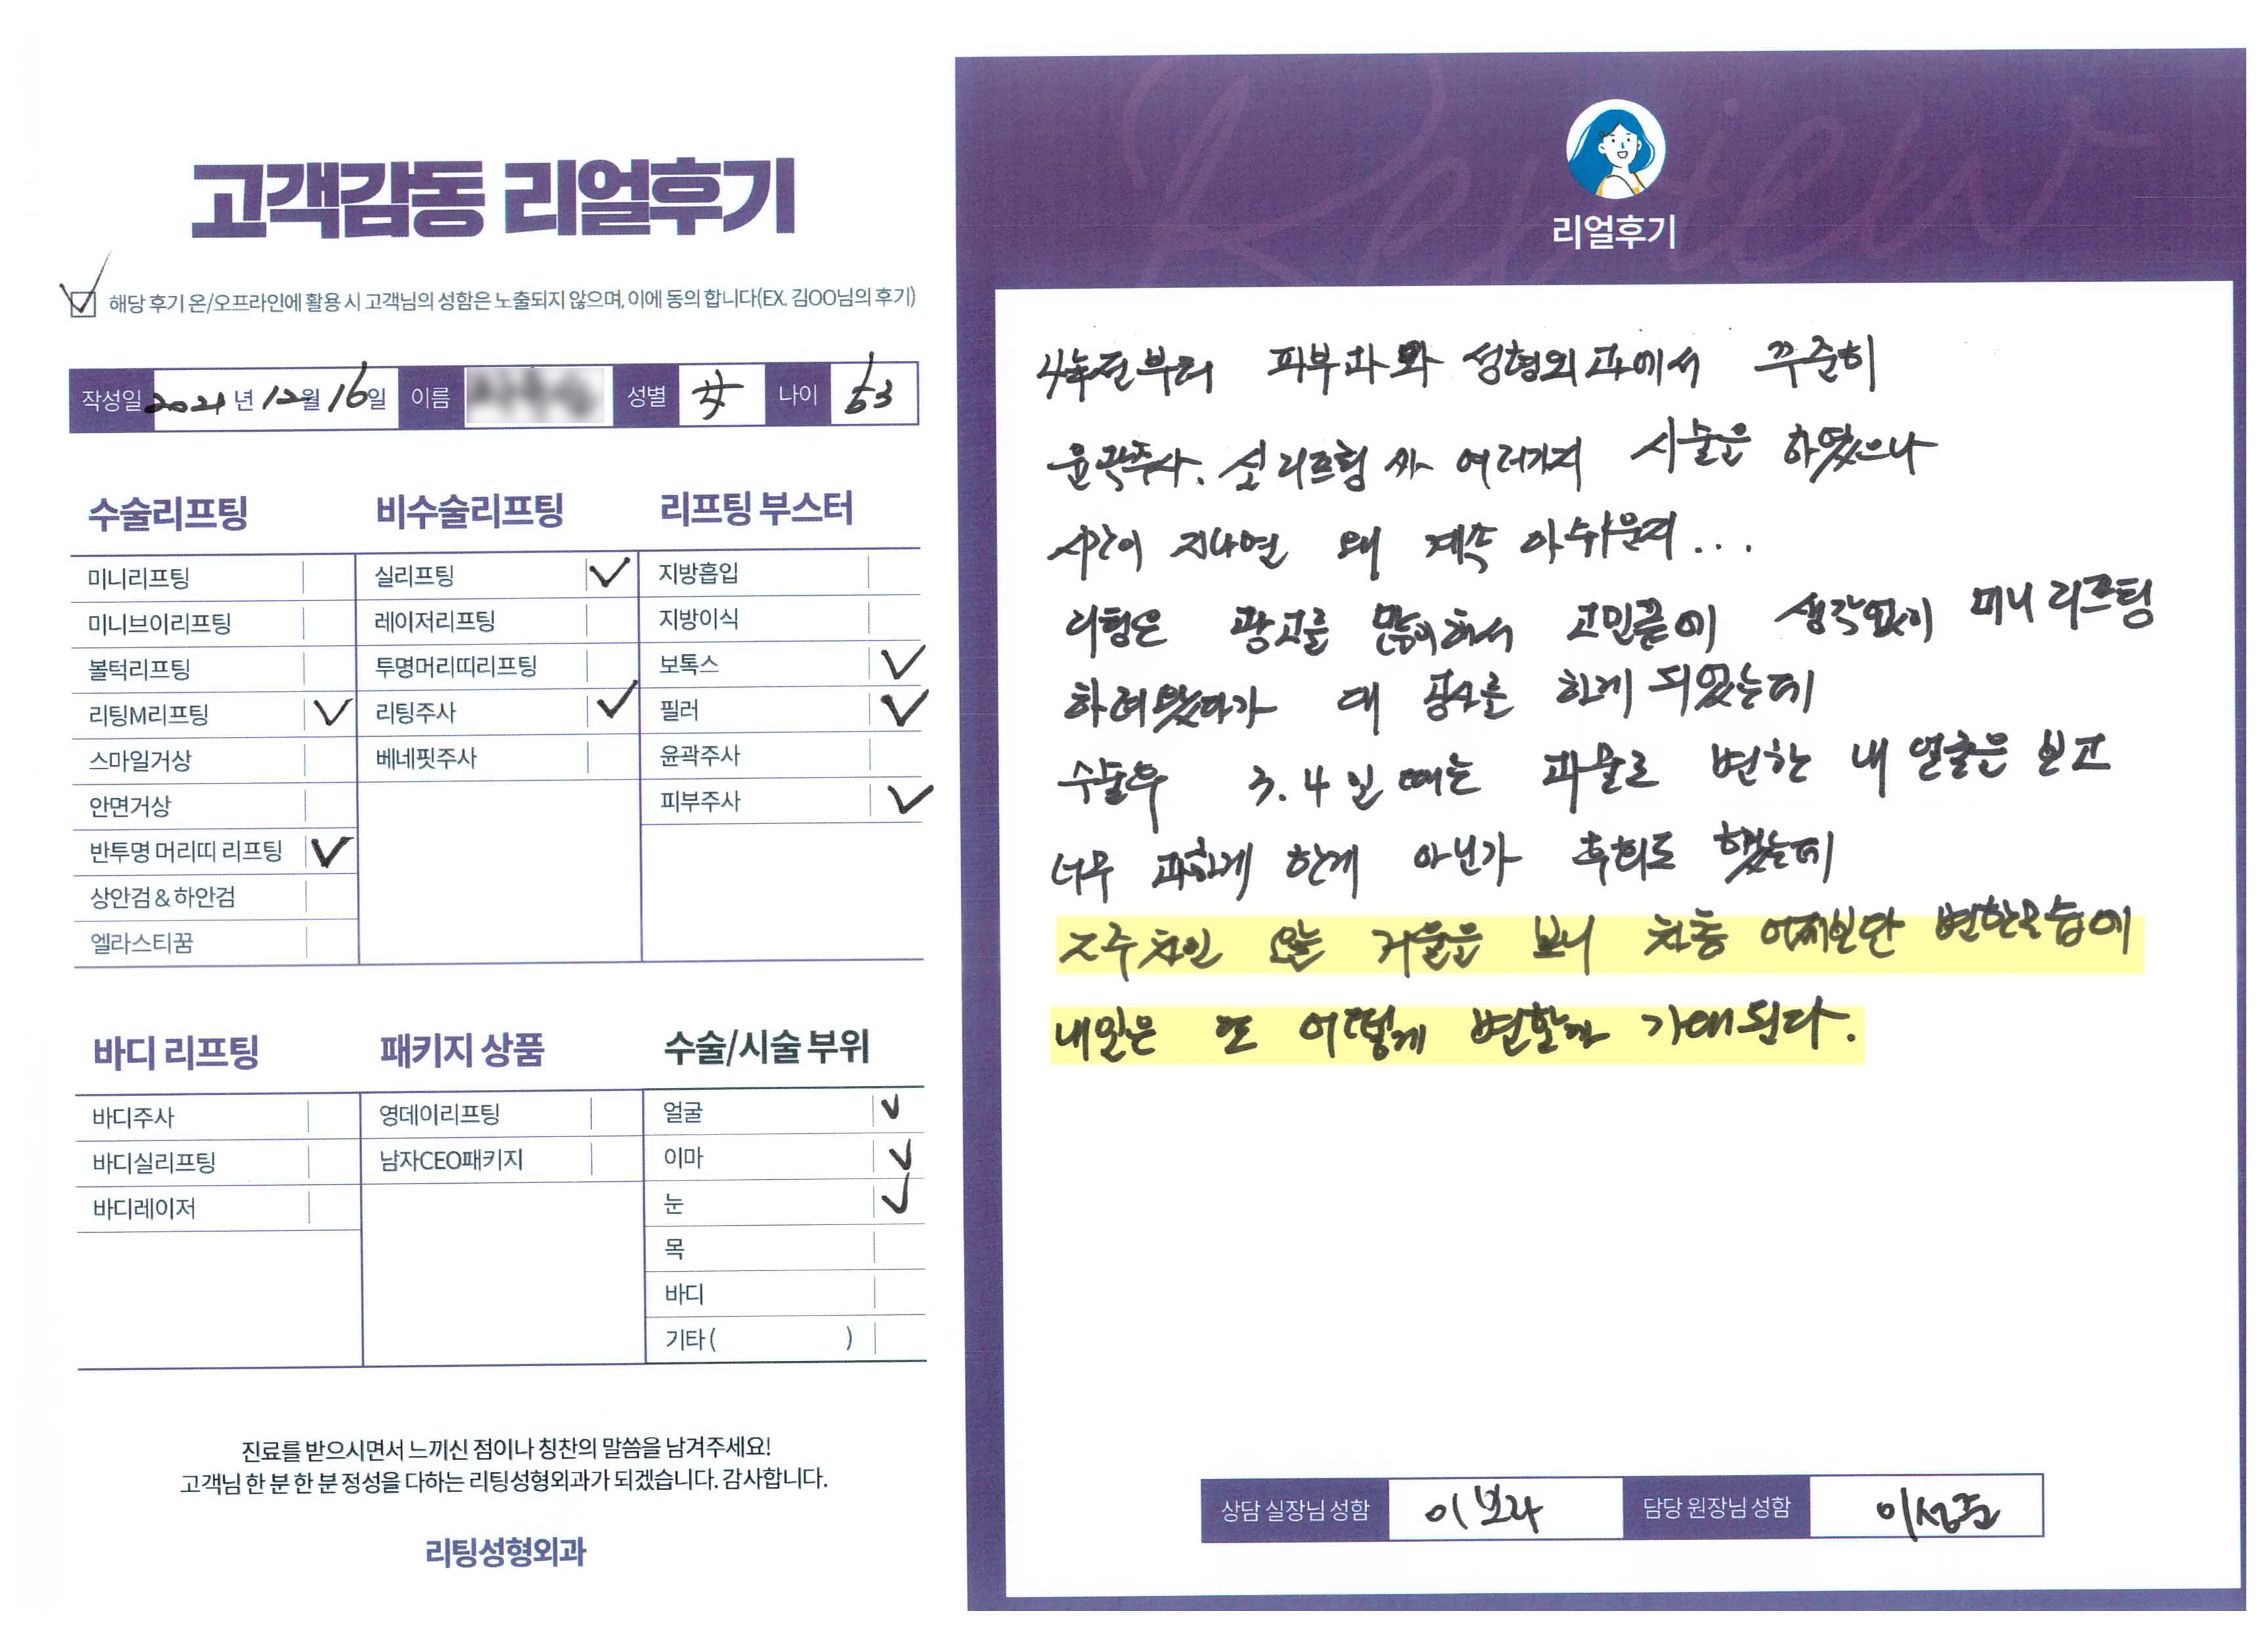 고객감동 리얼후기
해당 후기 온/오프라인에 활용 시 고객님의 성함은 노출되지 않으며, 이에 동의 합니다(EX. 김OO님의 후기)
작성일 2021년 12월 16일 이름 성별 女 나이 53
수술리프팅
미니리프팅
미니브이리프팅
볼턱리프팅
리팅M리프팅
스마일거상
안면거상
반투명 머리띠 리프팅
상안검 & 하안검
엘라스티꿈
비수술리프팅
실리프팅
레이저리프팅
투명머리띠리프팅
리팅주사
베네핏주사
리프팅 부스터
지방흡입
지방이식
보톡스
필러
윤곽주사
피부주사
바디 리프팅
바디주사
바디실리프팅
바디레이저
패키지 상품
영데이리프팅
남자CEO패키지
수술/시술 부위
얼굴
이마
눈
목
바디
기타 ( )
진료를 받으시면서 느끼신 점이나 칭찬의 말씀을 남겨주세요!
고객님 한 분 한 분 정성을 다하는 리팅성형외과가 되겠습니다. 감사합니다.
리팅성형외과
Review
리얼후기
4년전부터 피부과와 성형외과에서 꾸준히
윤곽주사. 실리프팅 여러가지 시술을 하였으나
시간이 지나면 왜 계속 아쉬운지...
리팅은 광고를 많이해서 고민끝에 생각없이 미니리프팅
하러왔다가 대 공사를 하게 되었는데
수술후 3.4일 때는 괴물로 변한 내 얼굴을 보고
너무 과하게 한게 아닌가 후회도 했는데
2주차인 오늘 거울을 보니 차츰 어제보단 변한모습에
내일은 또 어떻게 변할까 기대된다.
상담 실장님 성함 이보라 담당 원장님 성함 이성준